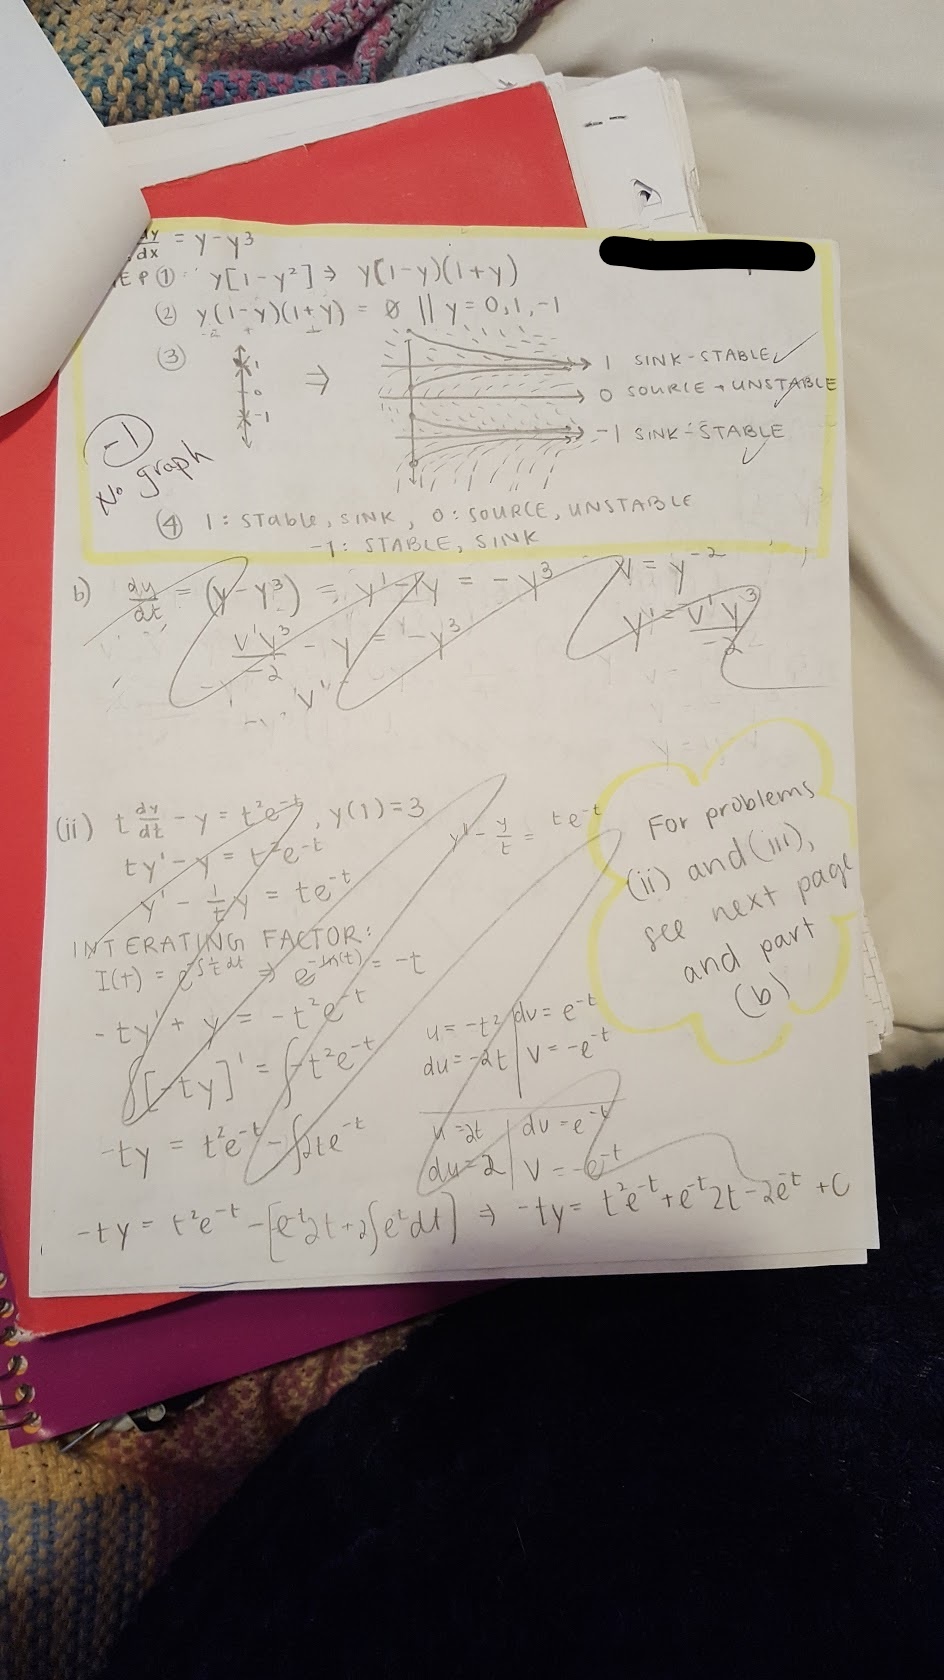 dy/dx = y-y³
EP ① : y[1-y²] ⇒ y(1-y)(1+y)
② y(1-y)(1+y) = Ø || y = 0, 1, -1
③ ⇒
1
0
-1
1 SINK-STABLE ✓
0 SOURCE → UNSTABLE ✓
-1 SINK-STABLE ✓
-1
No graph
④ 1: STable, SINK, 0: SOURCE, UNSTABLE
-1: STABLE, SINK
b) dy/dt = (y-y³) = y'-1y = -y³
V = y⁻²
v'y³/-2 - y = -y³
y' = v'y³/-2
v'
(ii) t dy/dt - y = t²e^-t , y(1)=3
ty' - y = t²e^-t
y' - y/t = te^-t
y' - 1/t y = te^-t
INTERATING FACTOR:
I(t) = e^-∫1/t dt ⇒ e^-ln(t) = -t
-ty' + y = -t²e^-t
∫[-ty]' = ∫-t²e^-t
-ty = t²e^-t - ∫2te^-t
u = -t² | dv = e^-t
du = -2t | V = -e^-t
u = 2t | dv = e^-t
du = 2 | V = -e^-t
-ty = t²e^-t - [e^-t 2t + 2∫e^t dt] ⇒ -ty = t²e^-t + e^-t 2t - 2e^-t + C
For problems
(ii) and (iii),
see next page
and part
(b)